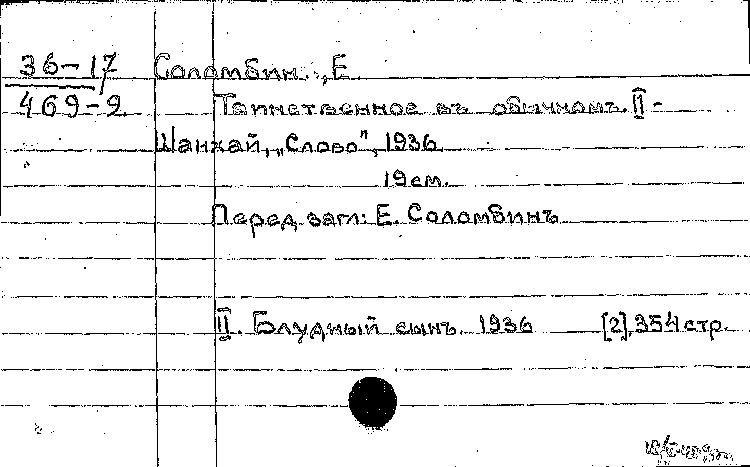 36-17
469-2
Соломбин., Е.
Таинственное въ обычномъ. II -
Шанхай, „Слово", 1936
19 см.
Перед загл: Е. Соломбинъ
II. Блудный сынъ. 1936 [2], 354 стр.